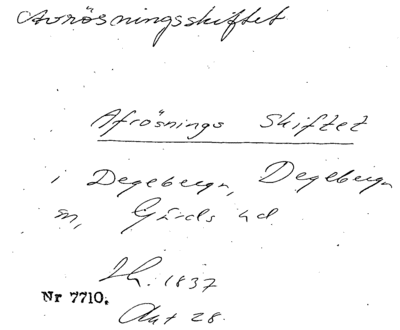 Avrösningsskiftet
Afrösnings Skiftet
i Degeberga, Degeberga
sn, Gärds hd.
Th. 1837
Nr 7710.
Akt 28.